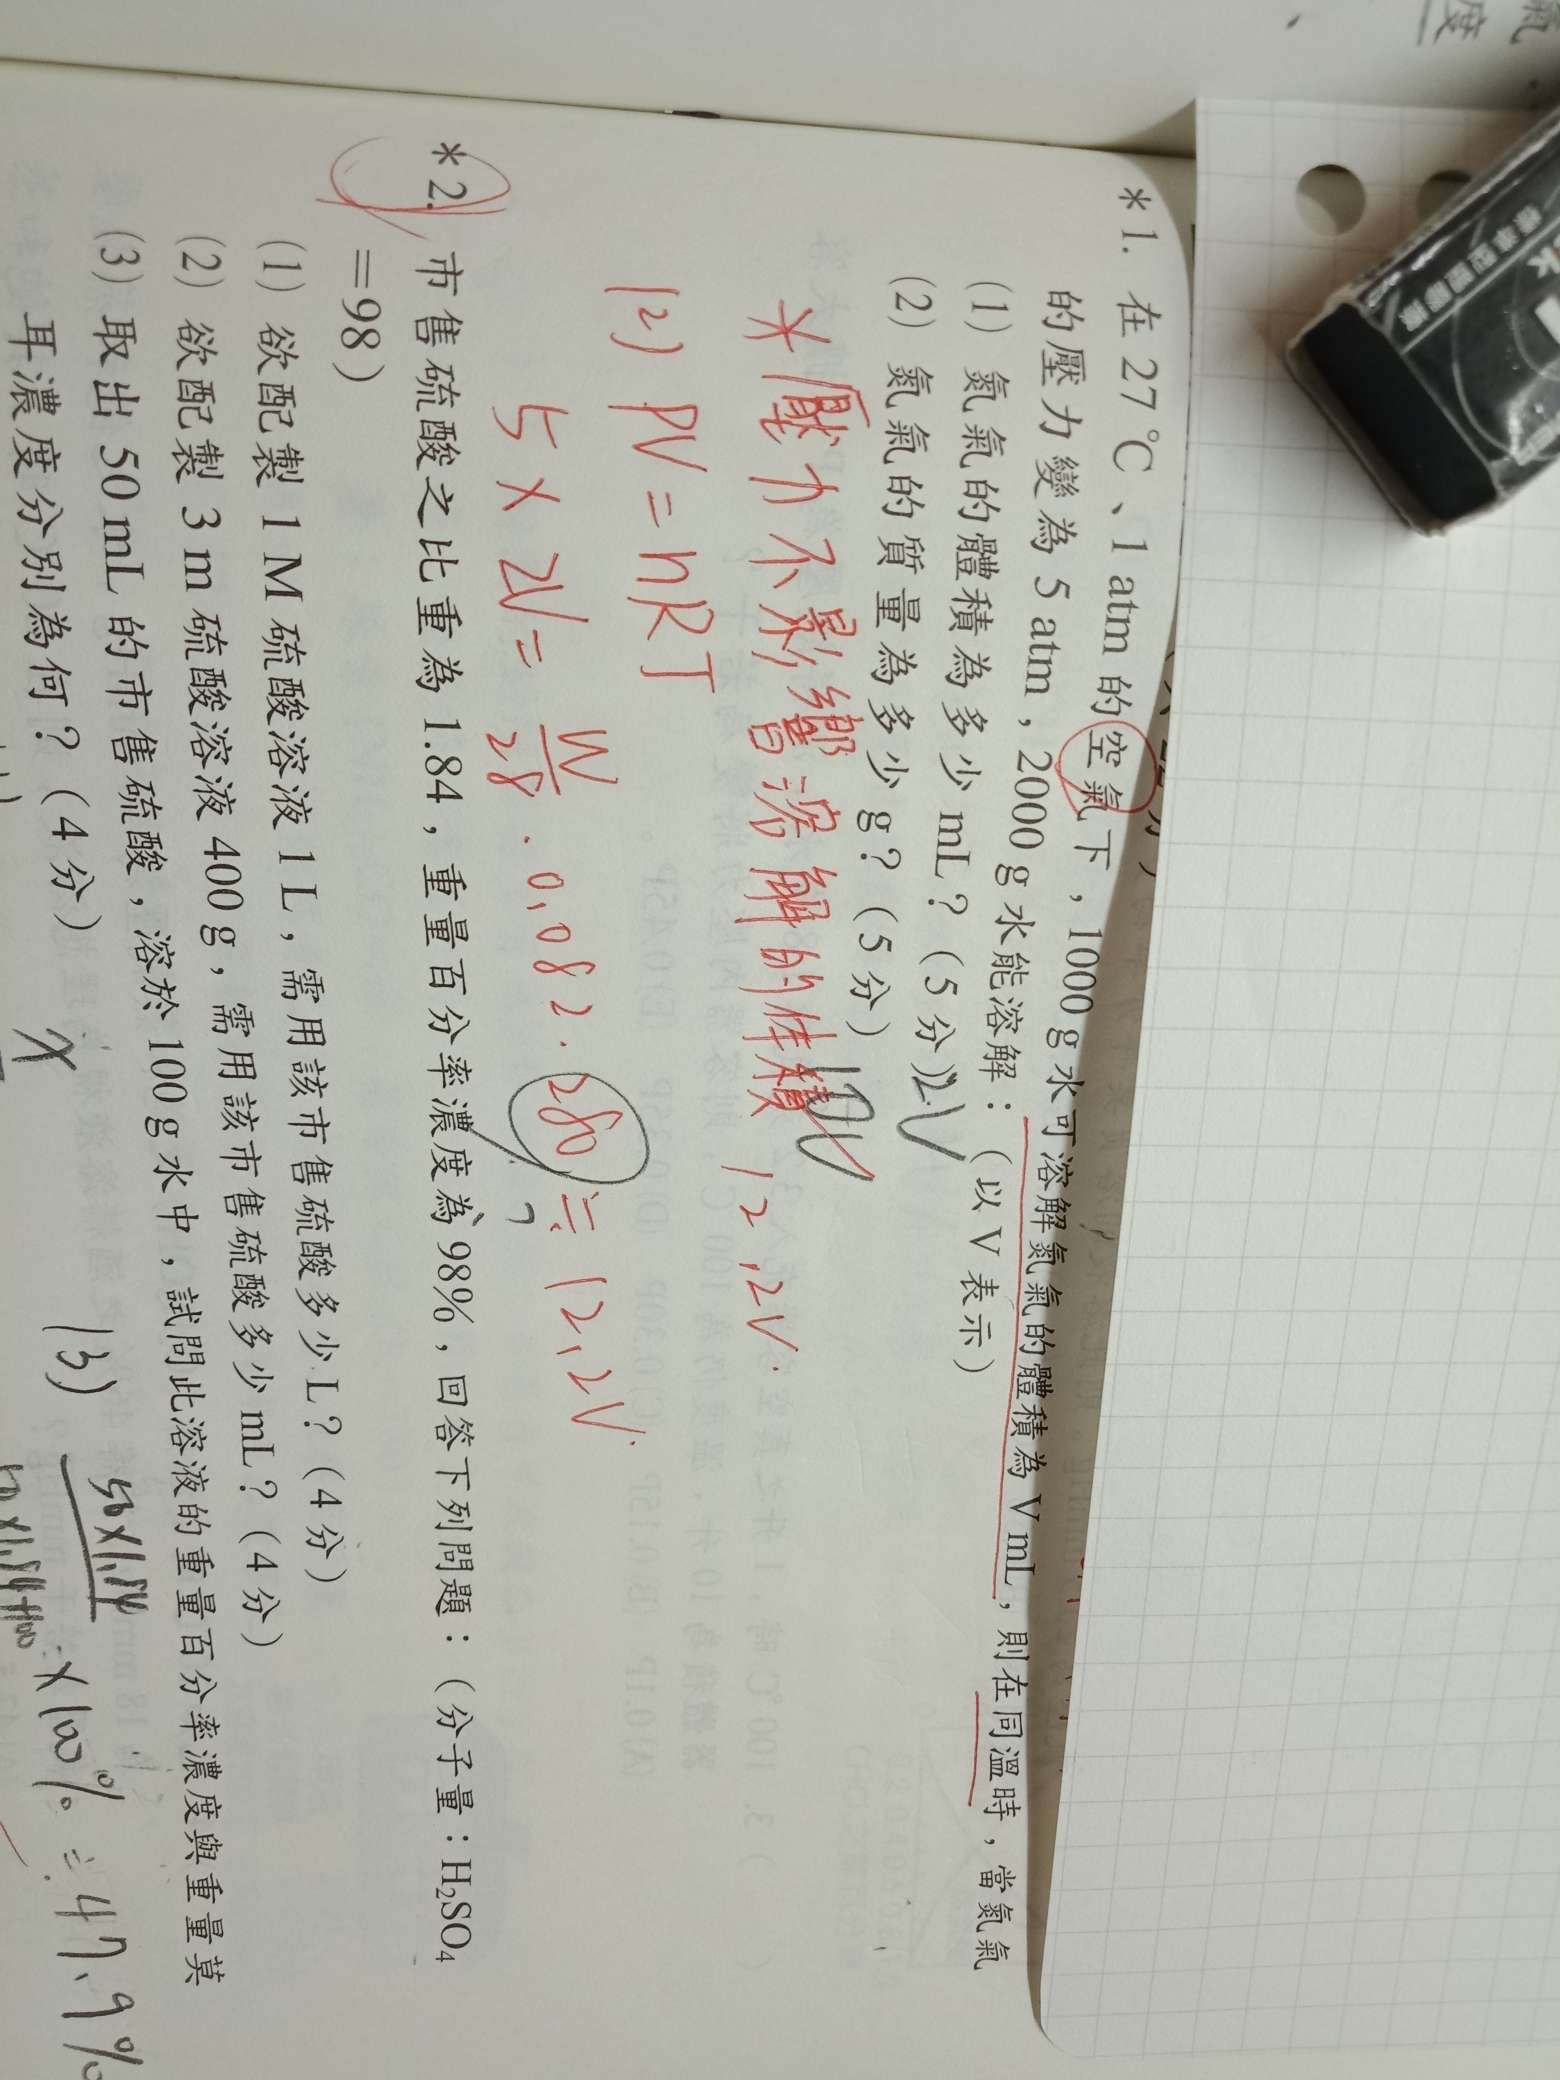 *1. 在 27℃、1 atm 的空氣下，1000 g 水可溶解氮氣的體積為 V mL，則在同溫時，當氮氣
的壓力變為 5 atm，2000 g 水能溶解：（以 V 表示）
(1) 氮氣的體積為多少 mL？（5 分）2V
(2) 氮氣的質量為多少 g？（5 分）10V
*壓力不影響溶解的体積 12.2V.
(2) PV = nRT
5 × 2V = W/28 . 0.082 . 280 ≒ 12.2V.
*2. 市售硫酸之比重為 1.84，重量百分率濃度為 98%，回答下列問題：（分子量：H₂SO₄
＝98）
(1) 欲配製 1 M 硫酸溶液 1 L，需用該市售硫酸多少 L？（4 分）
(2) 欲配製 3 m 硫酸溶液 400 g，需用該市售硫酸多少 mL？（4 分）
(3) 取出 50 mL 的市售硫酸，溶於 100 g 水中，試問此溶液的重量百分率濃度與重量莫
耳濃度分別為何？（4 分）
(3) 50×1.84 / 50×1.84+100 ×100% = 47.9%